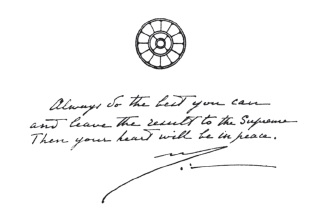 Always do the best you can
and leave the result to the Supreme
Then your heart will be in peace.